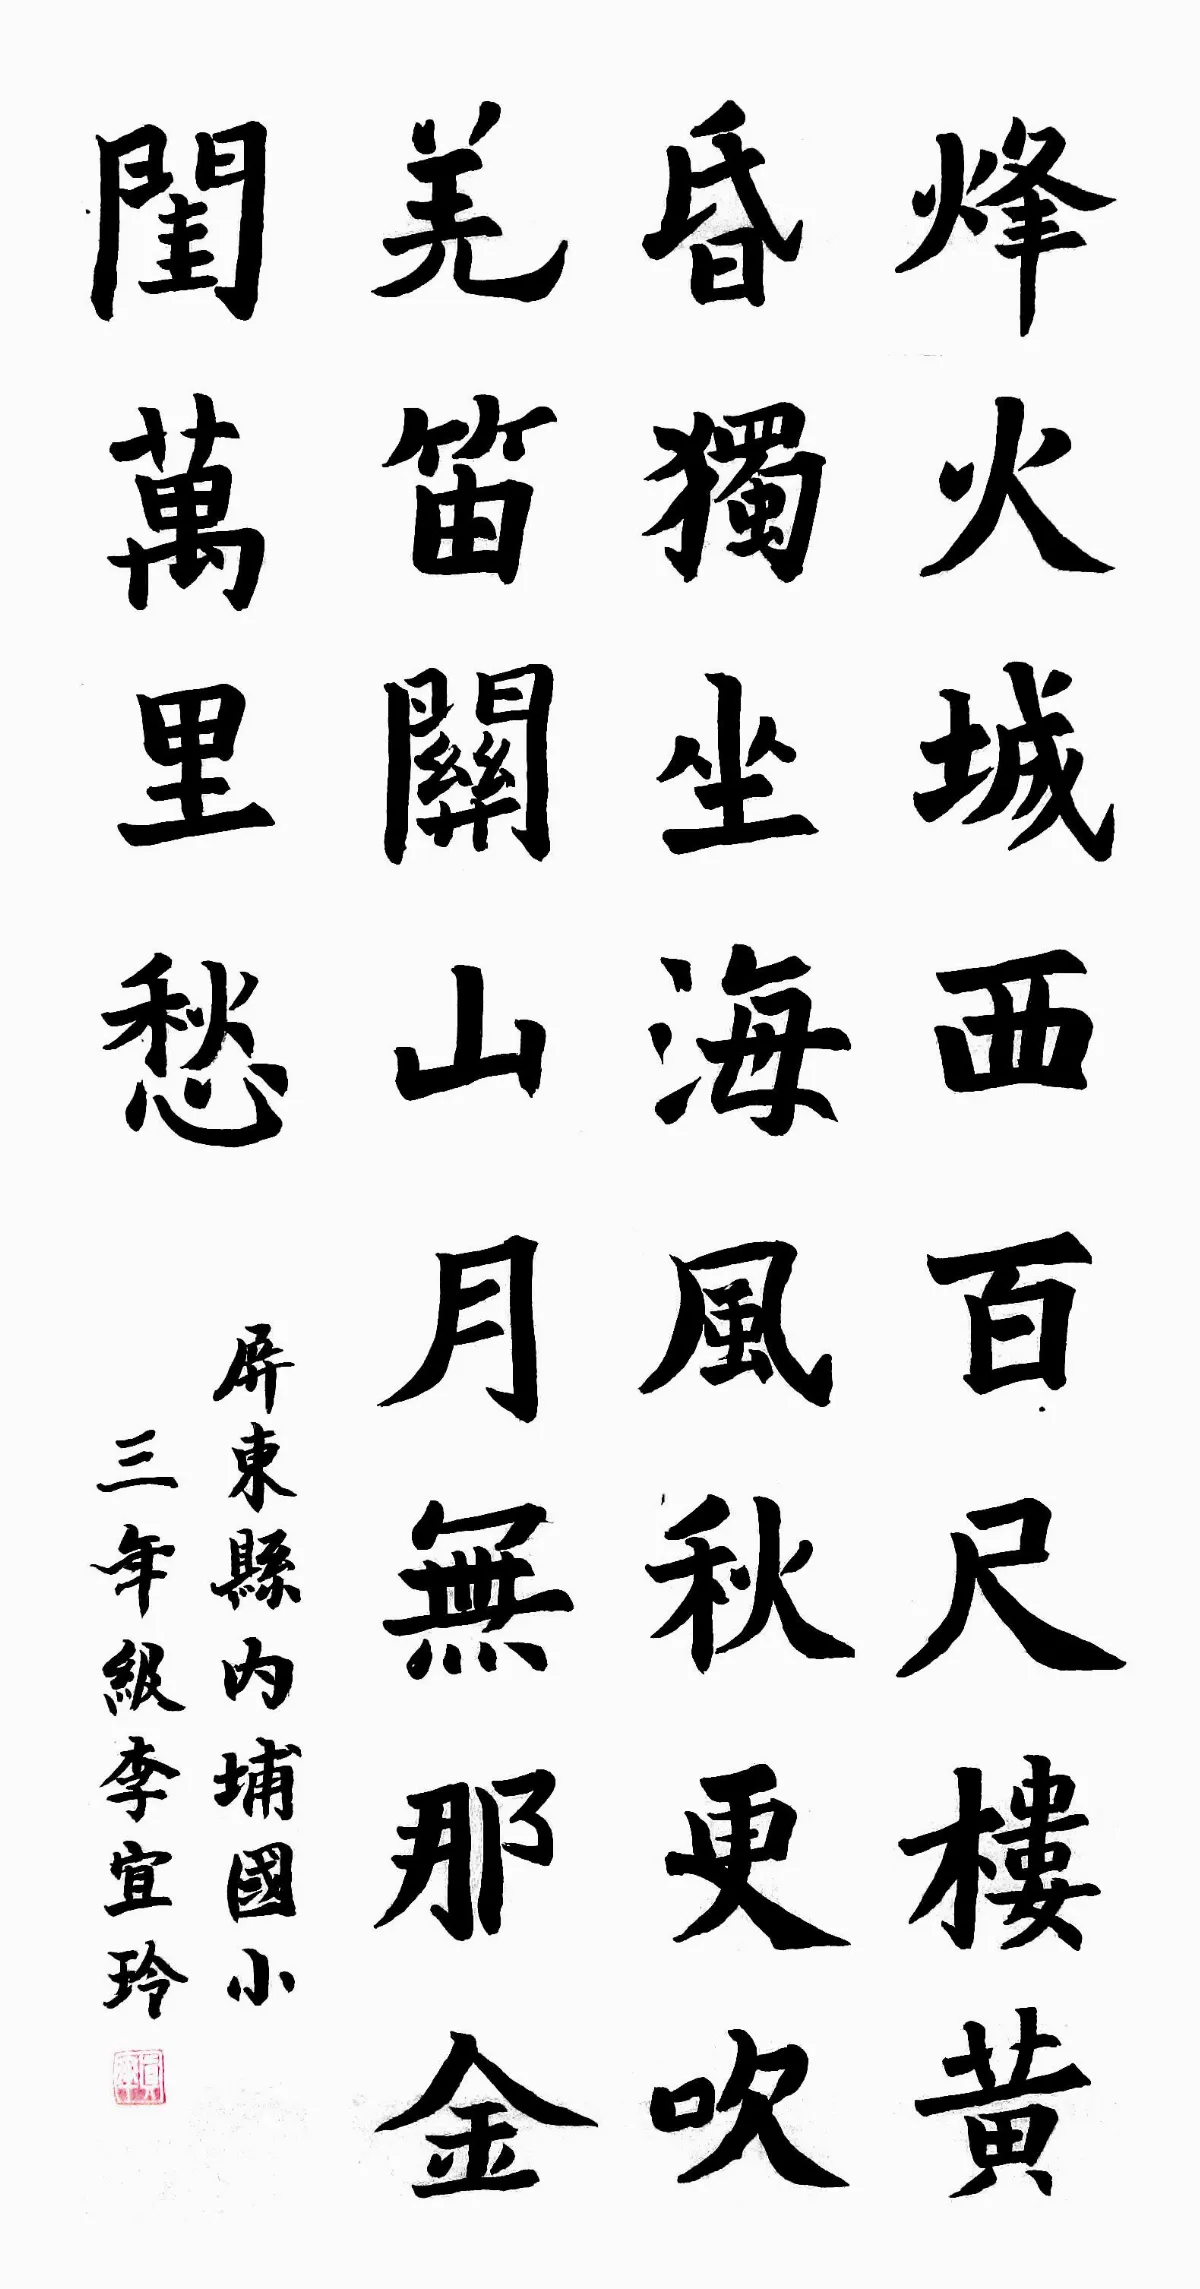 烽火城西百尺樓黃
昏獨坐海風秋更吹
羌笛關山月無那金
閨萬里愁
屏東縣內埔國小
三年級李宜玲